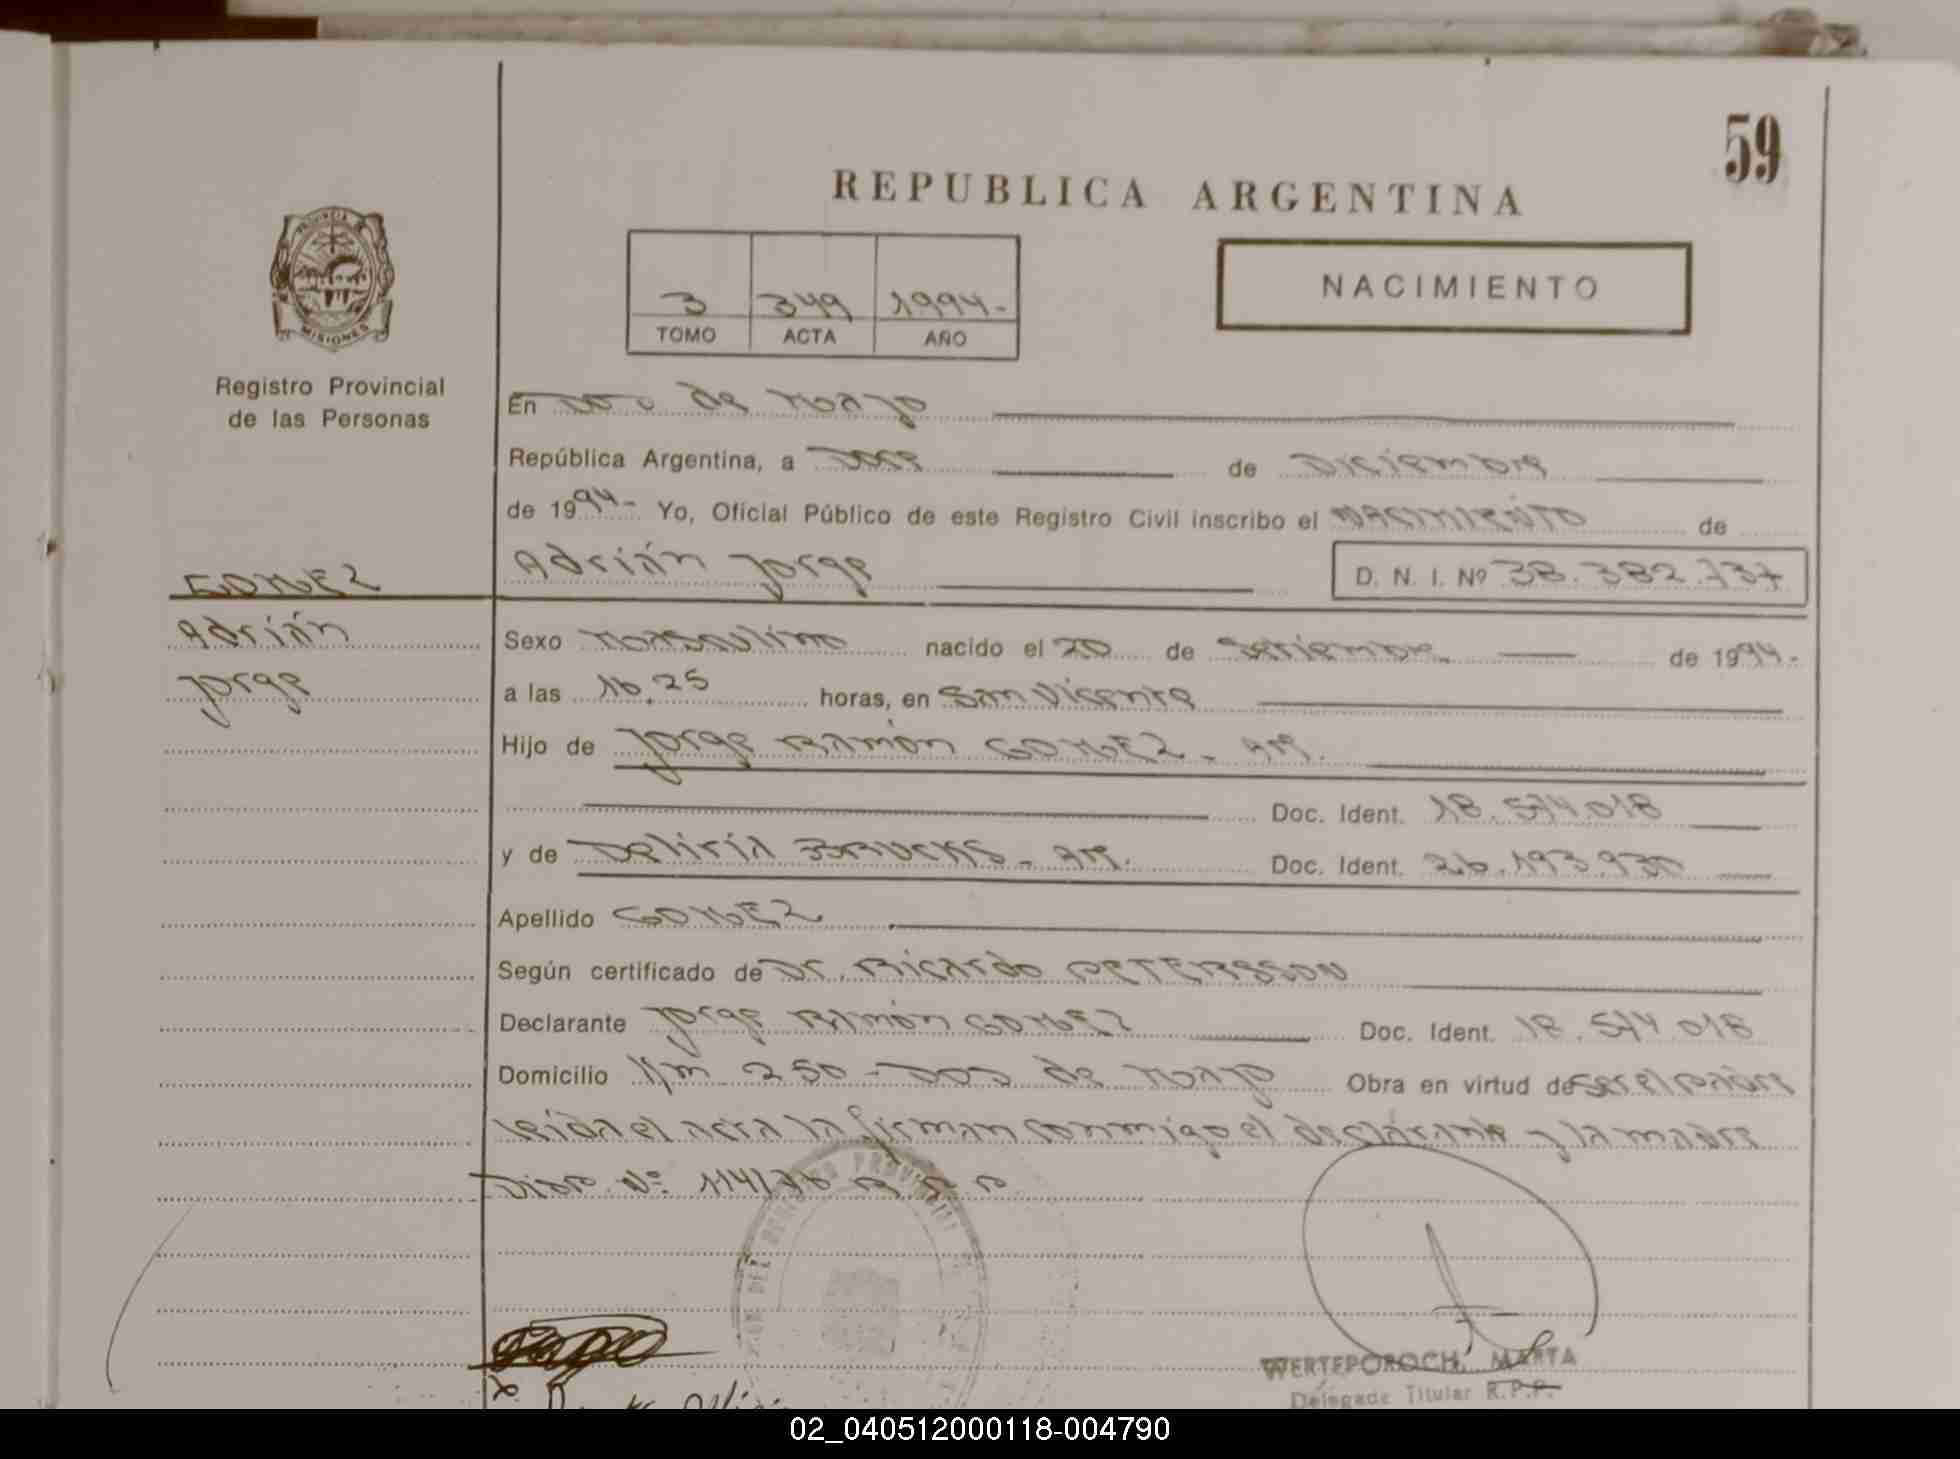 59
REPUBLICA ARGENTINA
3 349 1994-
TOMO ACTA AÑO
NACIMIENTO
MISIONES
Registro Provincial
de las Personas
En Dos de Mayo
República Argentina, a Doce de Diciembre
de 1994- Yo, Oficial Público de este Registro Civil inscribo el NACIMIENTO de
GOMEZ Adrián Jorge D. N. I. Nº 38.382.737
Adrián Sexo Masculino nacido el 20 de Setiembre de 1994-
Jorge a las 16,25 horas, en San Vicente
Hijo de Jorge Ramón GOMEZ - Arg.
Doc. Ident. 18.574.018
y de Deliria - Arg. Doc. Ident. 26.193.930
Apellido GOMEZ
Según certificado de Dr. Ricardo PETERSSON
Declarante Jorge Ramón GOMEZ Doc. Ident. 18.574.018
Domicilio Km 250 - Dos de Mayo Obra en virtud de ser el padre
leída el acta la firman conmigo el declarante y la madre
Disp. Nº 114/
WERTEPOROCH, MARTA
Delegada Titular R.P.P.
02_040512000118-004790